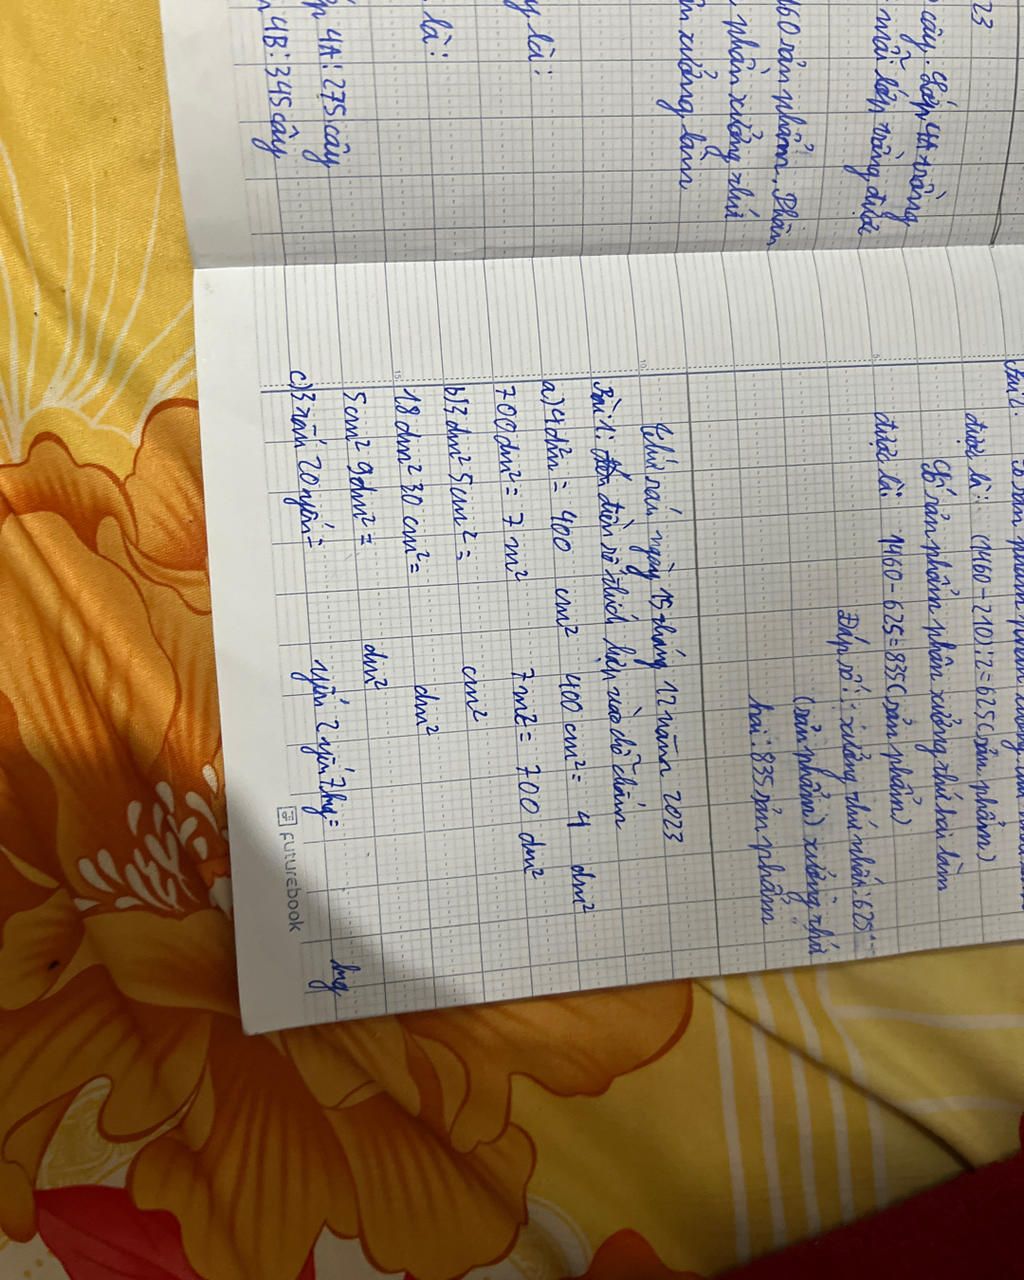 23
cây. Lớp 4A trồng
mỗi lớp trồng được
160 sản phẩm. Phân
phân xưởng thứ
n xưởng làm
y là:
là:
4A: 275 cây
4B: 345 cây
được là: (1460-210):2=625(sản phẩm)
Số sản phẩm phân xưởng thứ hai làm
được là: 1460-625=835(sản phẩm)
Đáp số: xưởng thứ nhất: 625
(sản phẩm) xưởng thứ
hai: 835 sản phẩm
Thứ sáu ngày 15 tháng 12 năm 2023
Bài 1: điền số thích hợp vào chỗ chấm
a) 4dm² = 400 cm² 400 cm² = 4 dm²
700dm² = 7 m² 7m² = 700 dm²
b) 3 dm² 5cm² = cm²
18 dm² 30 cm² = dm²
5cm² 9dm² = dm²
c) 3 tấn 20 yến = yến 2 yến 7kg = kg
futurebook
5
10
15